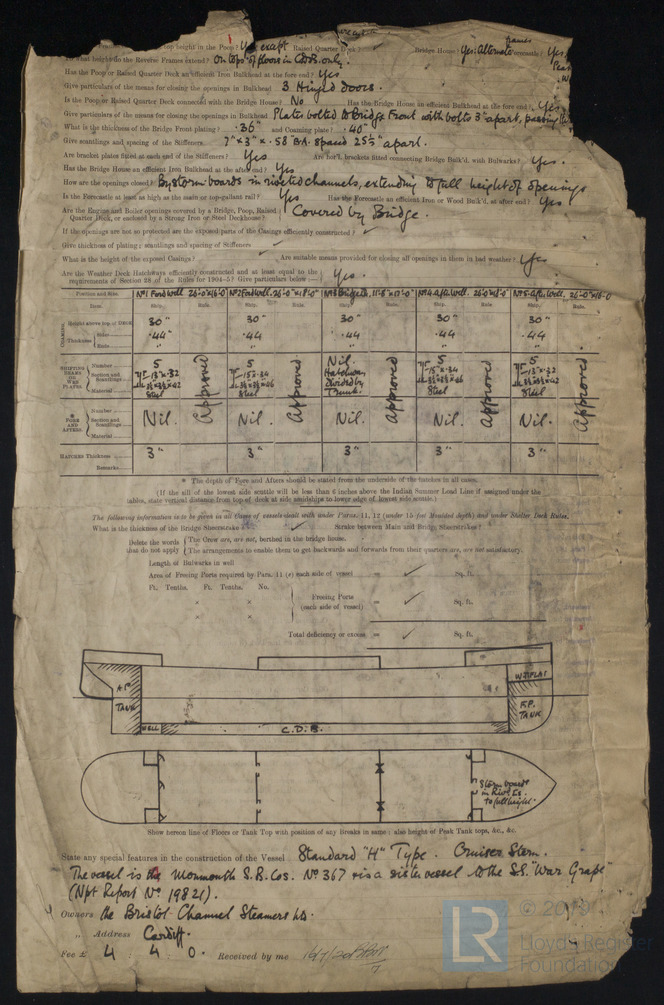 top height in the Poop? Yes except Raised Quarter Deck? Bridge House? Yes: Alternate frames Forecastle? Yes
To what height do the Reverse Frames extend? On tops of floors in C.D.B. only.
Has the Poop or Raised Quarter Deck an efficient Iron Bulkhead at the fore end? Yes
Give particulars of the means for closing the openings in Bulkhead 3 Hinged doors.
Is the Poop or Raised Quarter Deck connected with the Bridge House? No Has the Bridge House an efficient Bulkhead at the fore end? Yes
Give particulars of the means for closing the openings in Bulkhead Plates bolted to Bridge Front with bolts 3" apart, passing
What is the thickness of the Bridge Front plating? .36" and Coaming plate? .40"
Give scantlings and spacing of the Stiffeners 7" × 3" × .58 B.A. spaced 25½" apart.
Are bracket plates fitted at each end of the Stiffeners? Yes Are hor'l. brackets fitted connecting Bridge Bulk'd. with Bulwarks? Yes.
Has the Bridge House an efficient Iron Bulkhead at the after end? Yes
How are the openings closed? By storm-boards in riveted channels, extending to full height of openings
Is the Forecastle at least as high as the main or top-gallant rail? Yes Has the Forecastle an efficient Iron or Wood Bulk'd, at after end? Yes
Are the Engine and Boiler openings covered by a Bridge, Poop, Raised
Quarter Deck, or enclosed by a Strong Iron or Steel Deckhouse? Covered by Bridge.
If the openings are not so protected are the exposed parts of the Casings efficiently constructed? ✓
Give thickness of plating; scantlings and spacing of Stiffeners ✓
What is the height of the exposed Casings? ✓ Are suitable means provided for closing all openings in them in bad weather? Yes
Are the Weather Deck Hatchways efficiently constructed and at least equal to the
requirements of Section 28 of the Rules for 1904-5? Give particulars below:— Yes.
Position and Size. No 1 Ford Well. 26'-0"×16'-0" No 2 Ford Well. 26'-0"×18'-0" No 3 Bridge Dk. No 4 Aft. Well. 26'-0"×18'-0" No 5 Aft. Well. 26'-0"×16'-0"
Item. Ship. Rule. Ship. Rule. Ship. Rule. Ship. Rule. Ship. Rule.
COAMING.
Height above top of DECK 30" 30" 30" 30" 30"
Thickness Sides .44" .44 .44 .44 .44
Ends " " " " "
SHIFTING BEAMS OR WEB PLATES.
Number 5 5 Nil. 5 5
Section and Scantlings Hatchway divided by Trunk.
Material Steel Steel Steel Steel
Approved Approved Approved Approved Approved
* FORE AND AFTERS.
Number
Section and Scantlings Nil. Nil. Nil. Nil. Nil.
Material
HATCHES Thickness 3" 3" 3" 3" 3"
Remarks
* The depth of Fore and Afters should be stated from the underside of the hatches in all cases.
(If the sill of the lowest side scuttle will be less than 6 inches above the Indian Summer Load Line if assigned under the
tables, state vertical distance from top of deck at side amidships to lower edge of lowest side scuttle.)
The following information is to be given in all cases of vessels dealt with under Paras. 11, 12 (under 15 for Moulded depth) and under Shelter Deck Rules.
What is the thickness of the Bridge Sheerstrake ✓ Strake between Main and Bridge Sheerstrakes?
Delete the words that do not apply
The Crew are, are not, berthed in the bridge house.
The arrangements to enable them to get backwards and forwards from their quarters are, are not satisfactory.
Length of Bulwarks in well
Area of Freeing Ports required by Para. 11 (e) each side of vessel = ✓ Sq. ft.
Ft. Tenths. Ft. Tenths. No.
× ×
× ×
Freeing Ports (each side of vessel) = ✓ Sq. ft.
Total deficiency or excess = ✓ Sq. ft.
A.P. TANK
WELL
C.D.B.
W.T. FLAT
F.P. TANK
Storm boards in Riv. Cs. to full height.
Show hereon line of Floors or Tank Top with position of any Breaks in same: also height of Peak Tank tops, &c., &c.
State any special features in the construction of the Vessel Standard "H" Type. Cruiser Stern.
The vessel is the Monmouth S.B. Cos. No 367 & is a sister vessel to the S.S. "War Grape"
(Npt Report No 19821).
Owners the Bristol Channel Steamers Ld.
" Address Cardiff.
Fee £ 4 : 4 . 0. Received by me
© 2019
LR
Lloyd's Register
Foundation